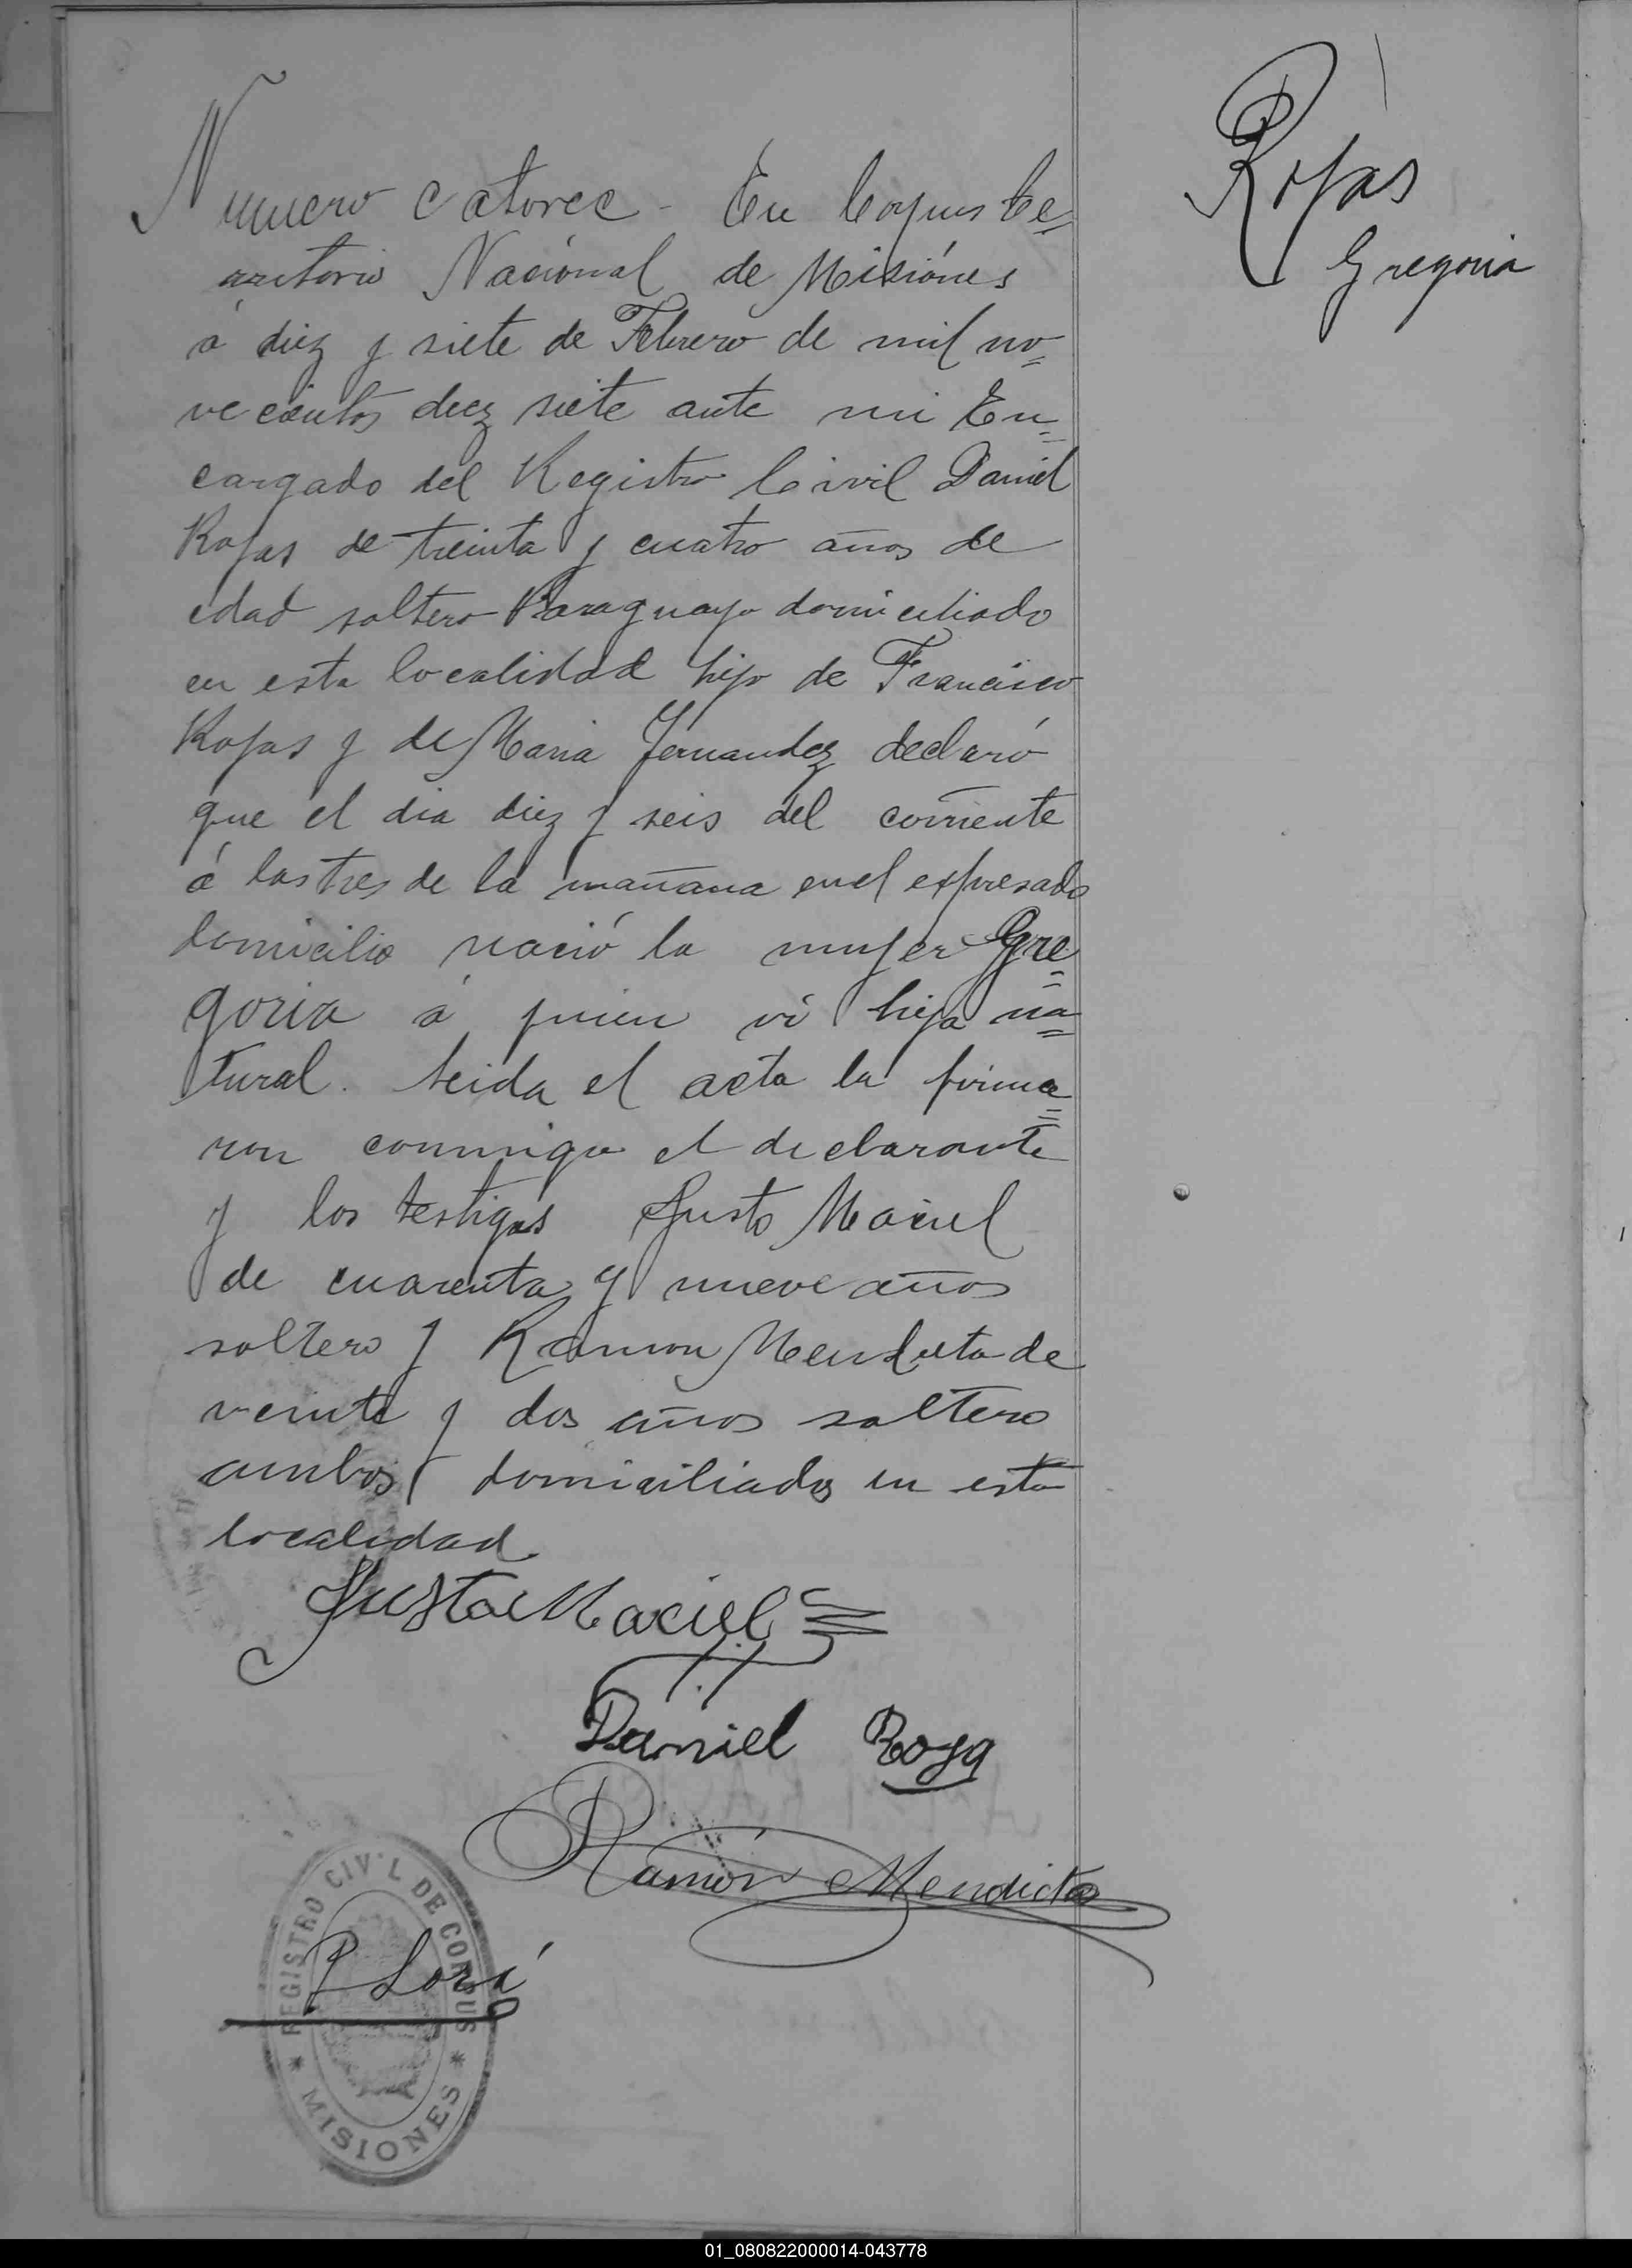 Rojas
Gregoria
Numero catorce - En Corpus Te=
rritorio Nacional de Misiónes
á diez y siete de Febrero de mil no=
vecientos diez siete ante mi En=
cargado del Registro Civil Daniel
Rojas de treinta y cuatro años de
edad soltero Paraguayo domiciliado
en esta localidad hijo de Francisco
Rojas y de Maria Fernandez declaró
que el dia diez y seis del corriente
á las tres de la mañana en el expresado
domicilio nació la mujer Gre=
goria á quien vi hija na=
tural. Leida el acta la firma=
ron conmigo el declarante
y los testigos Justo Maciel
de cuarenta y nueve años
soltero y Ramon Mendieta de
veinte y dos años soltero
ambos domiciliados en esta
localidad
Justo Maciel
Daniel Roja
Ramón Mendieta
REGISTRO CIVIL DE CORPUS
* MISIONES *
01_080822000014-043778